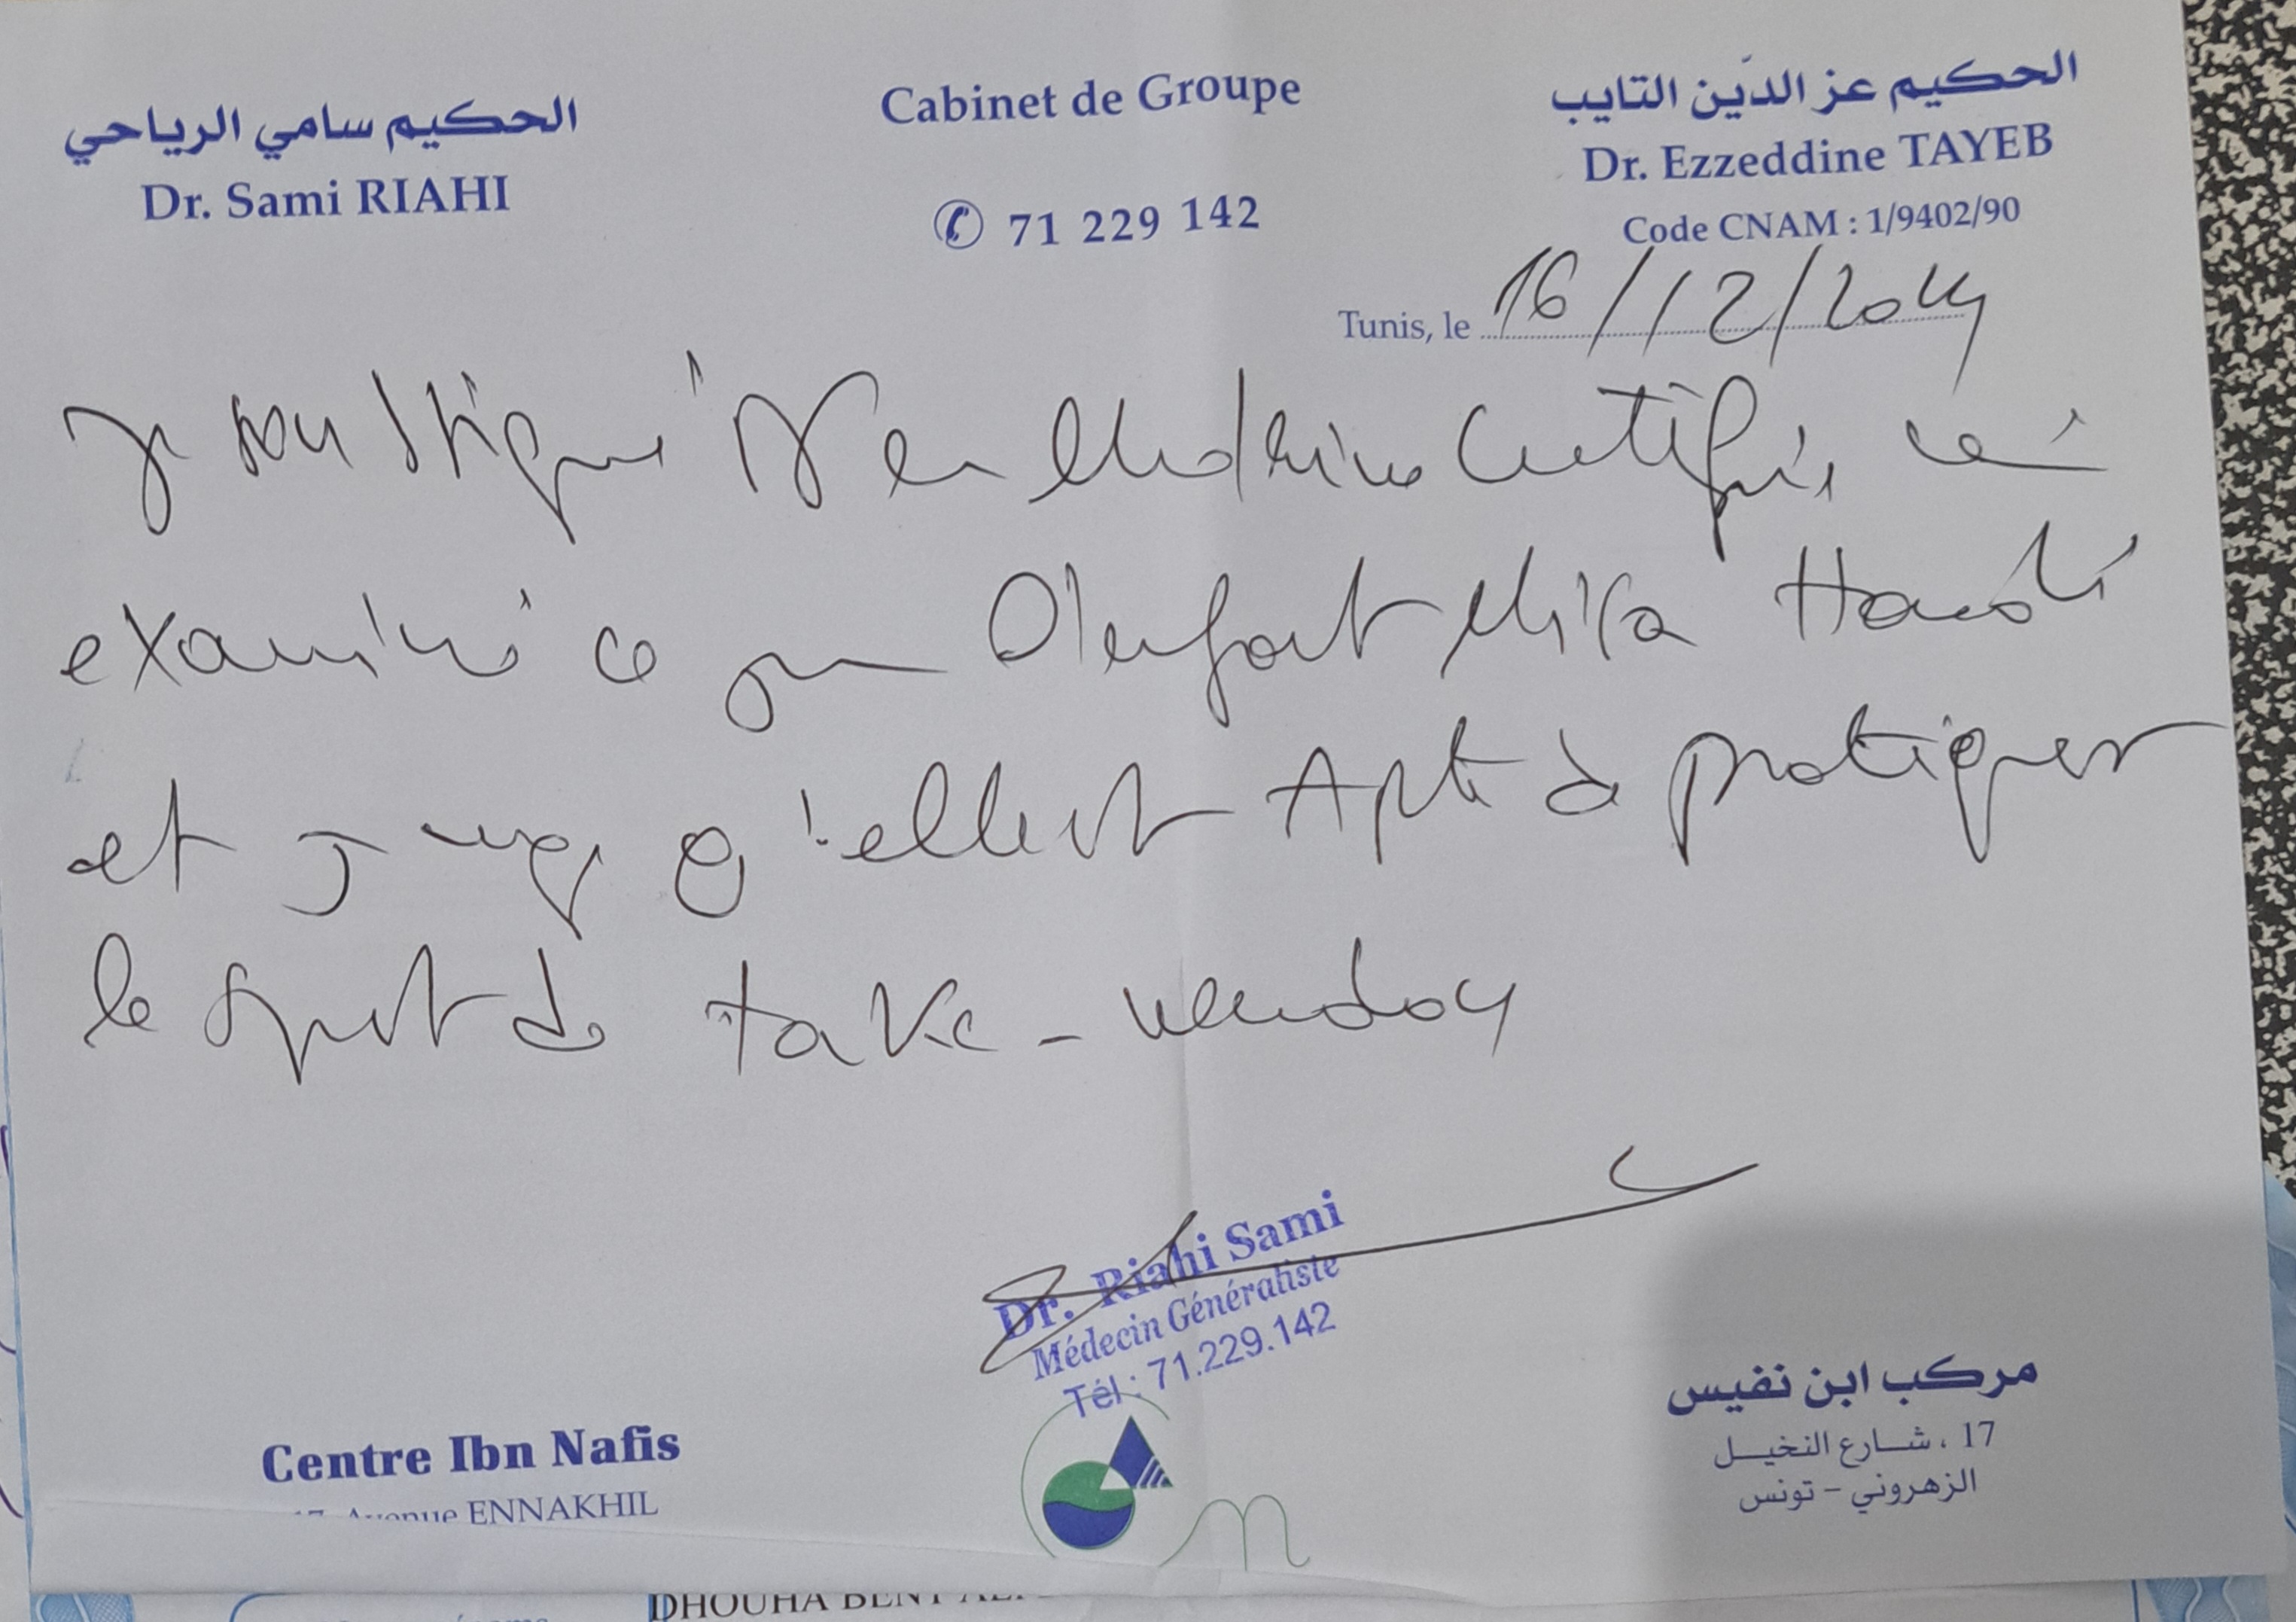 الحكيم سامي الرياحي
Dr. Sami RIAHI
Cabinet de Groupe
71 229 142
الحكيم عز الدّين التايب
Dr. Ezzeddine TAYEB
Code CNAM : 1/9402/90
Tunis, le 16/12/2024
Je soussigné Dr en Médecine certifie avoir
examiné ce jour l'enfant Hamdi
et juge qu'elle est Apte à pratiquer
le sport de
Dr. Riahi Sami
Médecin Généraliste
Tél : 71.229.142
Centre Ibn Nafis
17, Avenue ENNAKHIL
مركب ابن نفيس
17 ، شارع النخيل
الزهروني - تونس
DHOUHA BENT